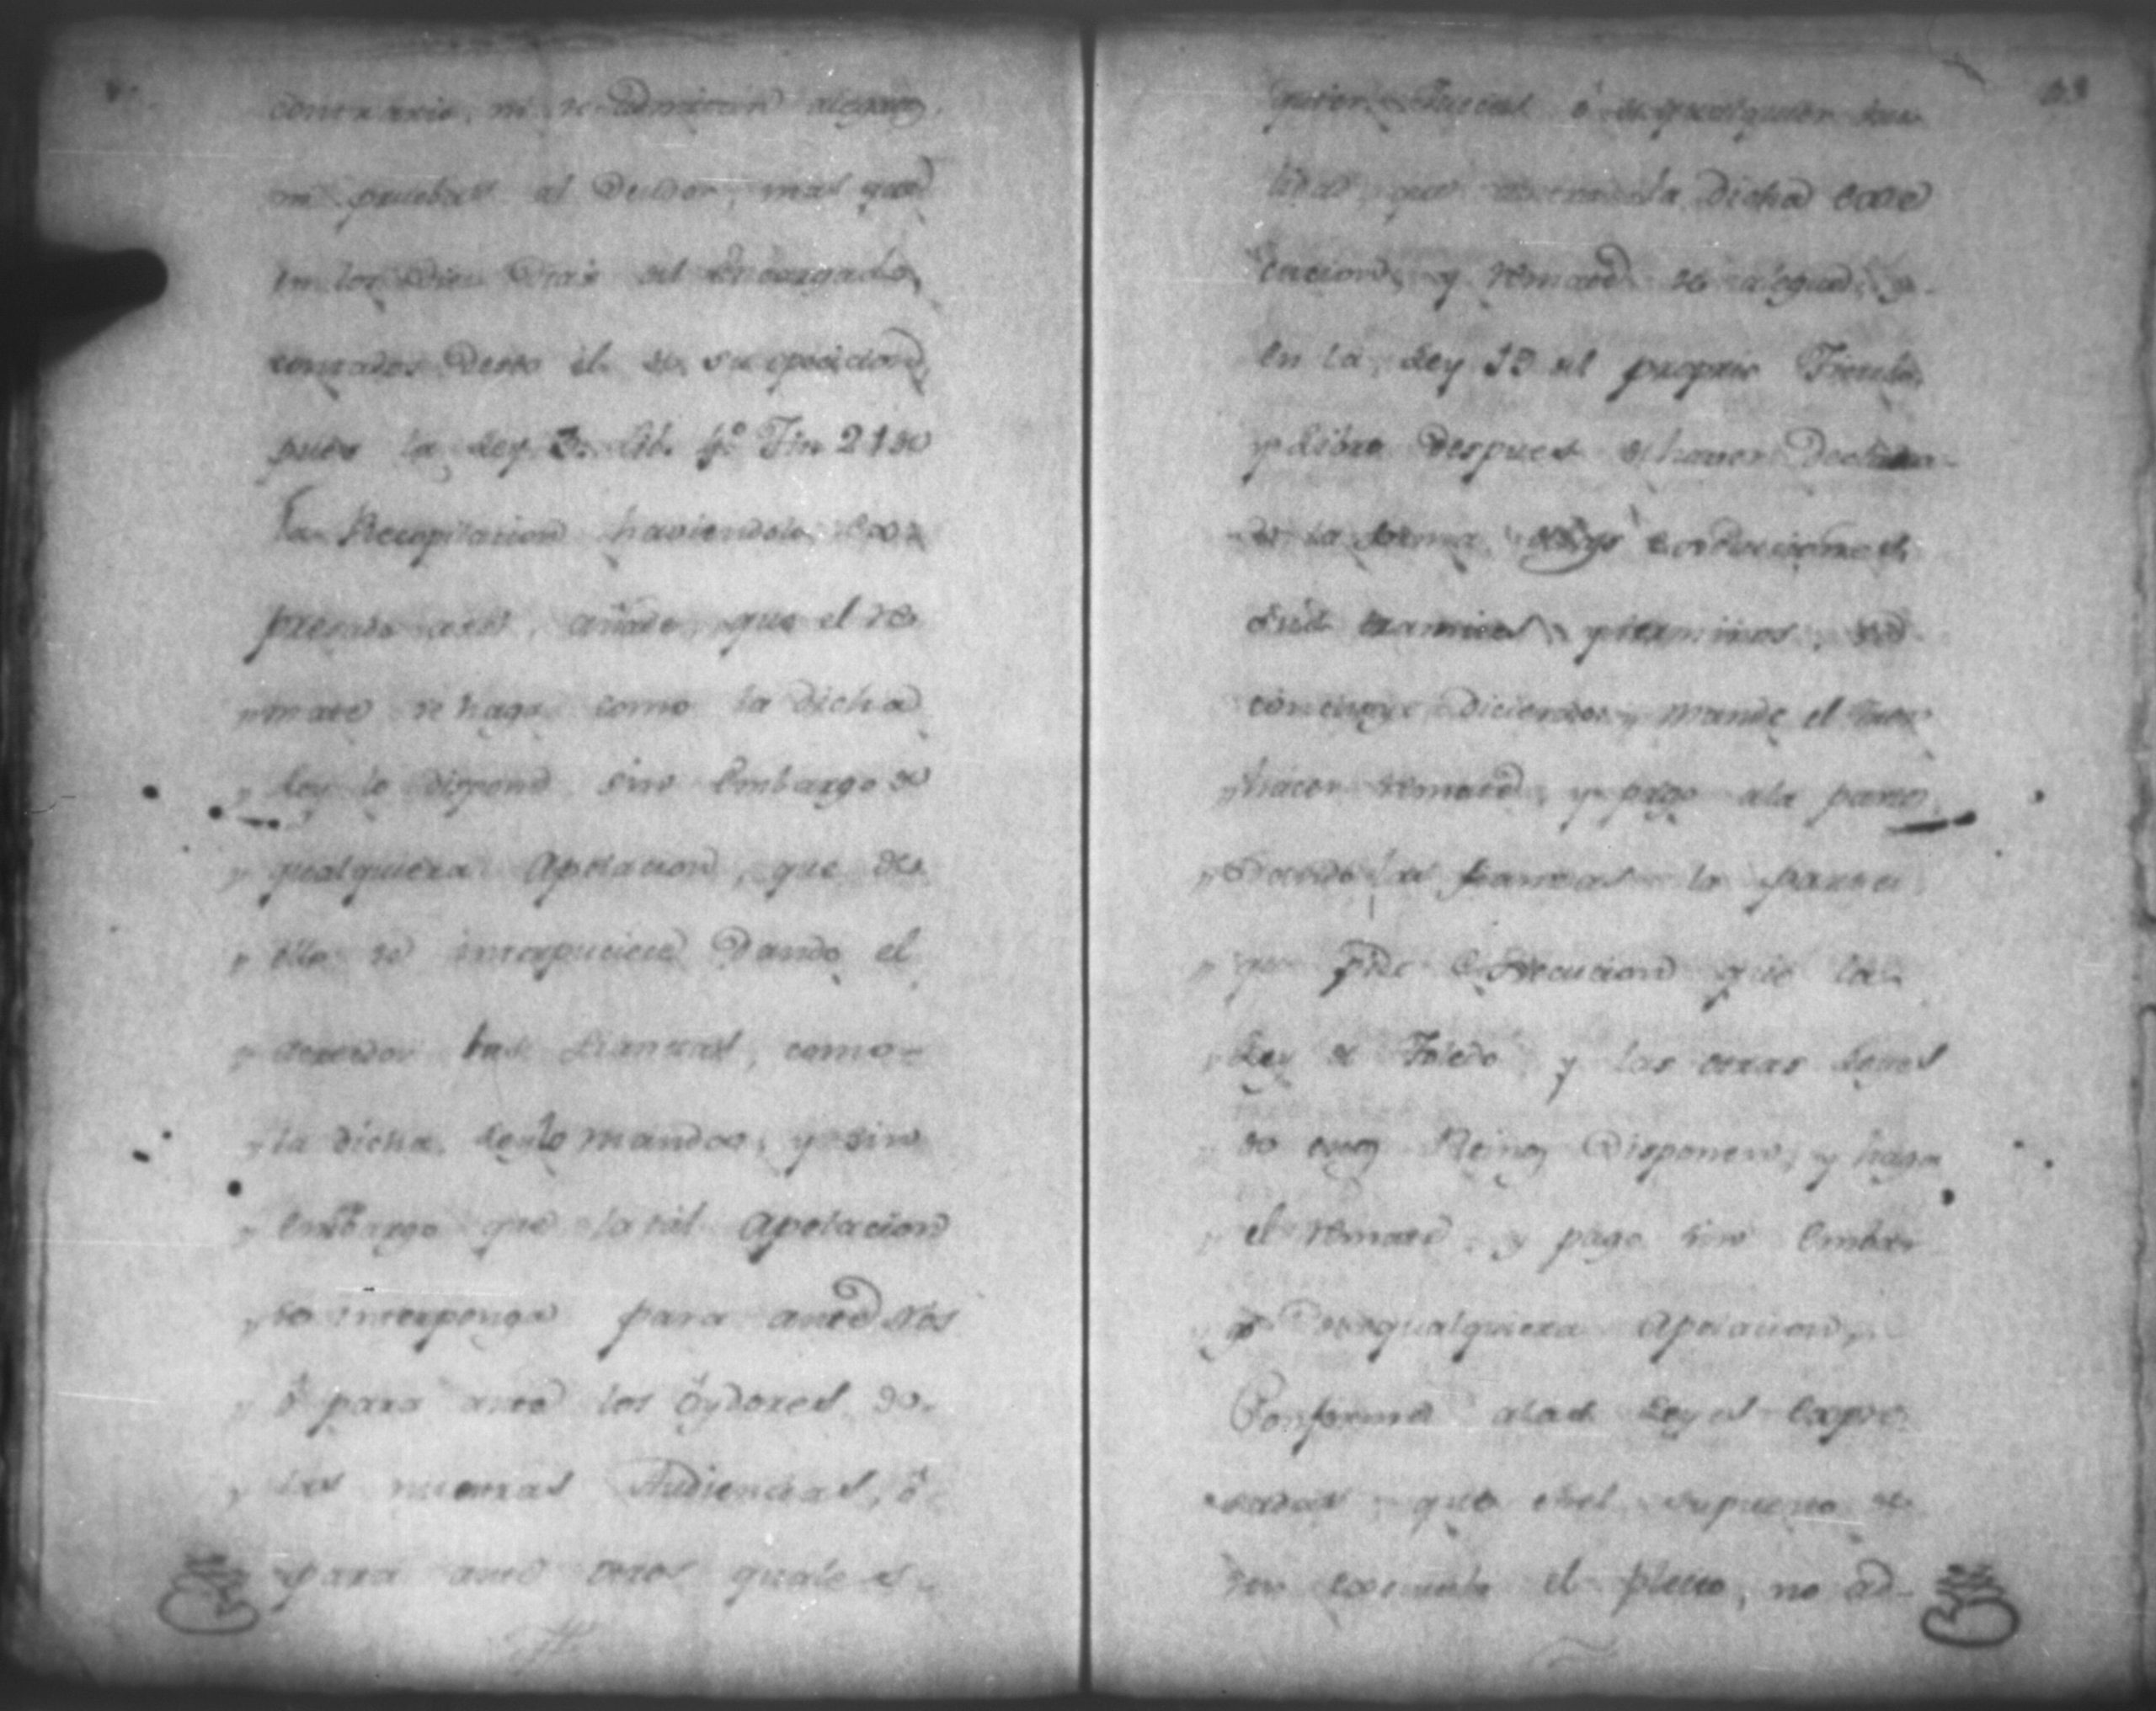 contrario, ni se admitan alegatos,
ni pruebas al Deudor, mas que
en los Diez Dias del Encargado,
contados desde el de su oposicion,
pues la Ley 3. Lib. 4º Tit. 21 de
la Recopilacion haviendole ex-
presado assi, añade, que el re
" mate se haga como la dicha
" Ley lo dispone sin embargo de
" qualquiera apelacion, que de
" ello se interpusiere Dando el
" acreedor las fianzas, como
" la dicha Ley lo manda, y sin
" embargo que la tal apelacion
" se interponga para ante Nos
" ó para ante los oydores de
" las nuestras Audiencias, ó
" para ante otros quales
quier Jueces ó de qualquier
que dicha exe
cucion, y remate se alegue, y
en la Ley 19 del proprio Titulo,
y Libro despues de haver declara-
do la forma,
sus tramites y terminos, se
concluye diciendo, mande el Juez
" hacer remate, y pago a la parte
" Dando las fianzas la parte
" que pide execucion que la
" Ley de Toledo y las otras Leyes
" de estos Reinos Disponen, y haga
" el remate, y pago sin embar
" go de qualquiera apelacion,
Conforme a las Leyes expre
sadas, que en el supuesto de
ser executivo el pleito, no ad-